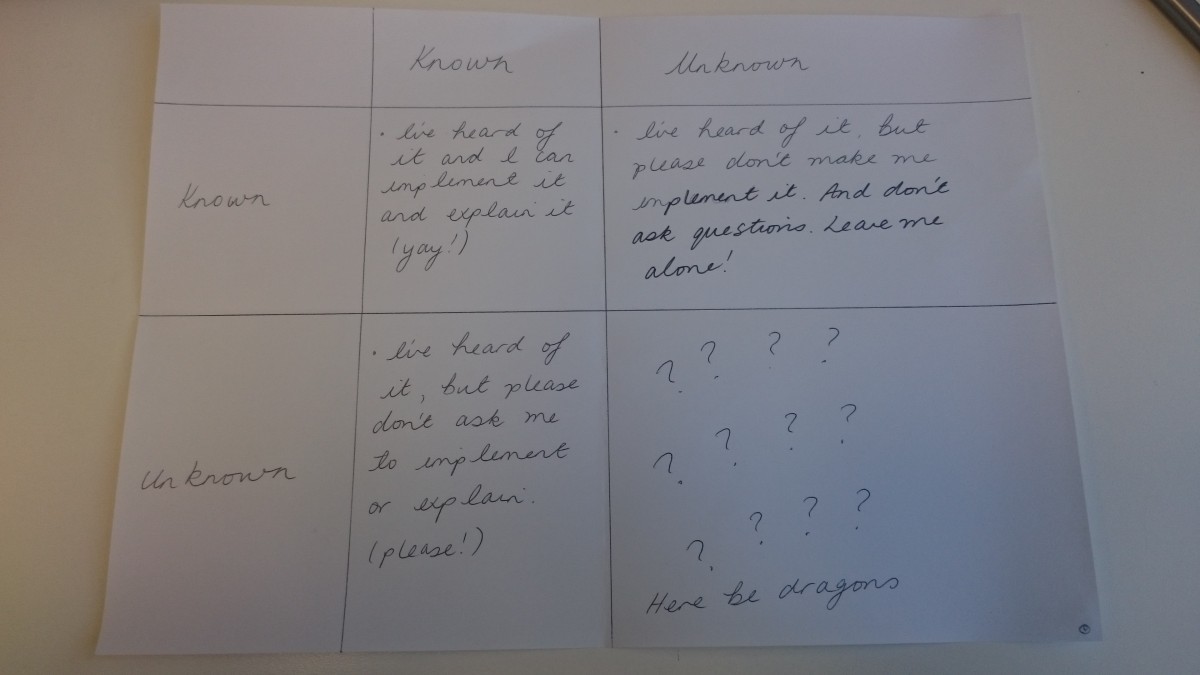 Known
Unknown
Known
· I've heard of
it and I can
implement it
and explain it
(yay!)
· I've heard of it, but
please don't make me
implement it. And don't
ask questions. Leave me
alone!
Unknown
· I've heard of
it, but please
don't ask me
to implement
or explain.
(please!)
? ? ? ?
? ? ? ?
? ? ? ?
Here be dragons